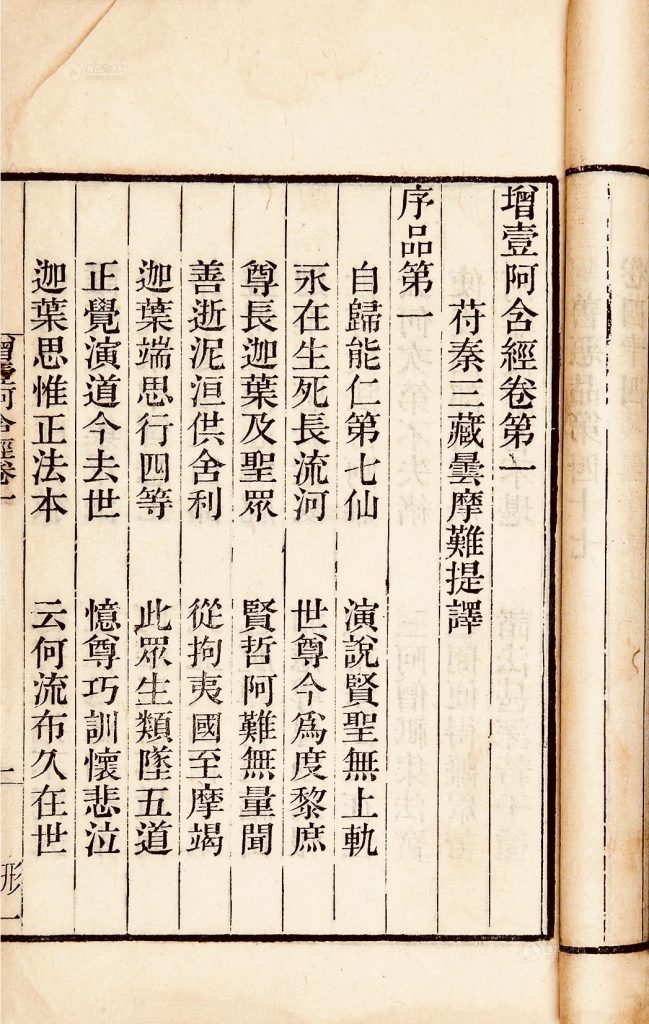 增壹阿含經卷第一
苻秦三藏曇摩難提譯
序品第一
自歸能仁第七仙　演說賢聖無上軌
永在生死長流河　世尊今爲度黎庶
尊長迦葉及聖眾　賢哲阿難無量聞
善逝泥洹供舍利　從拘夷國至摩竭
迦葉端思行四等　此眾生類墜五道
正覺演道今去世　憶尊巧訓懷悲泣
迦葉思惟正法本　云何流布久在世
增壹阿含經卷一